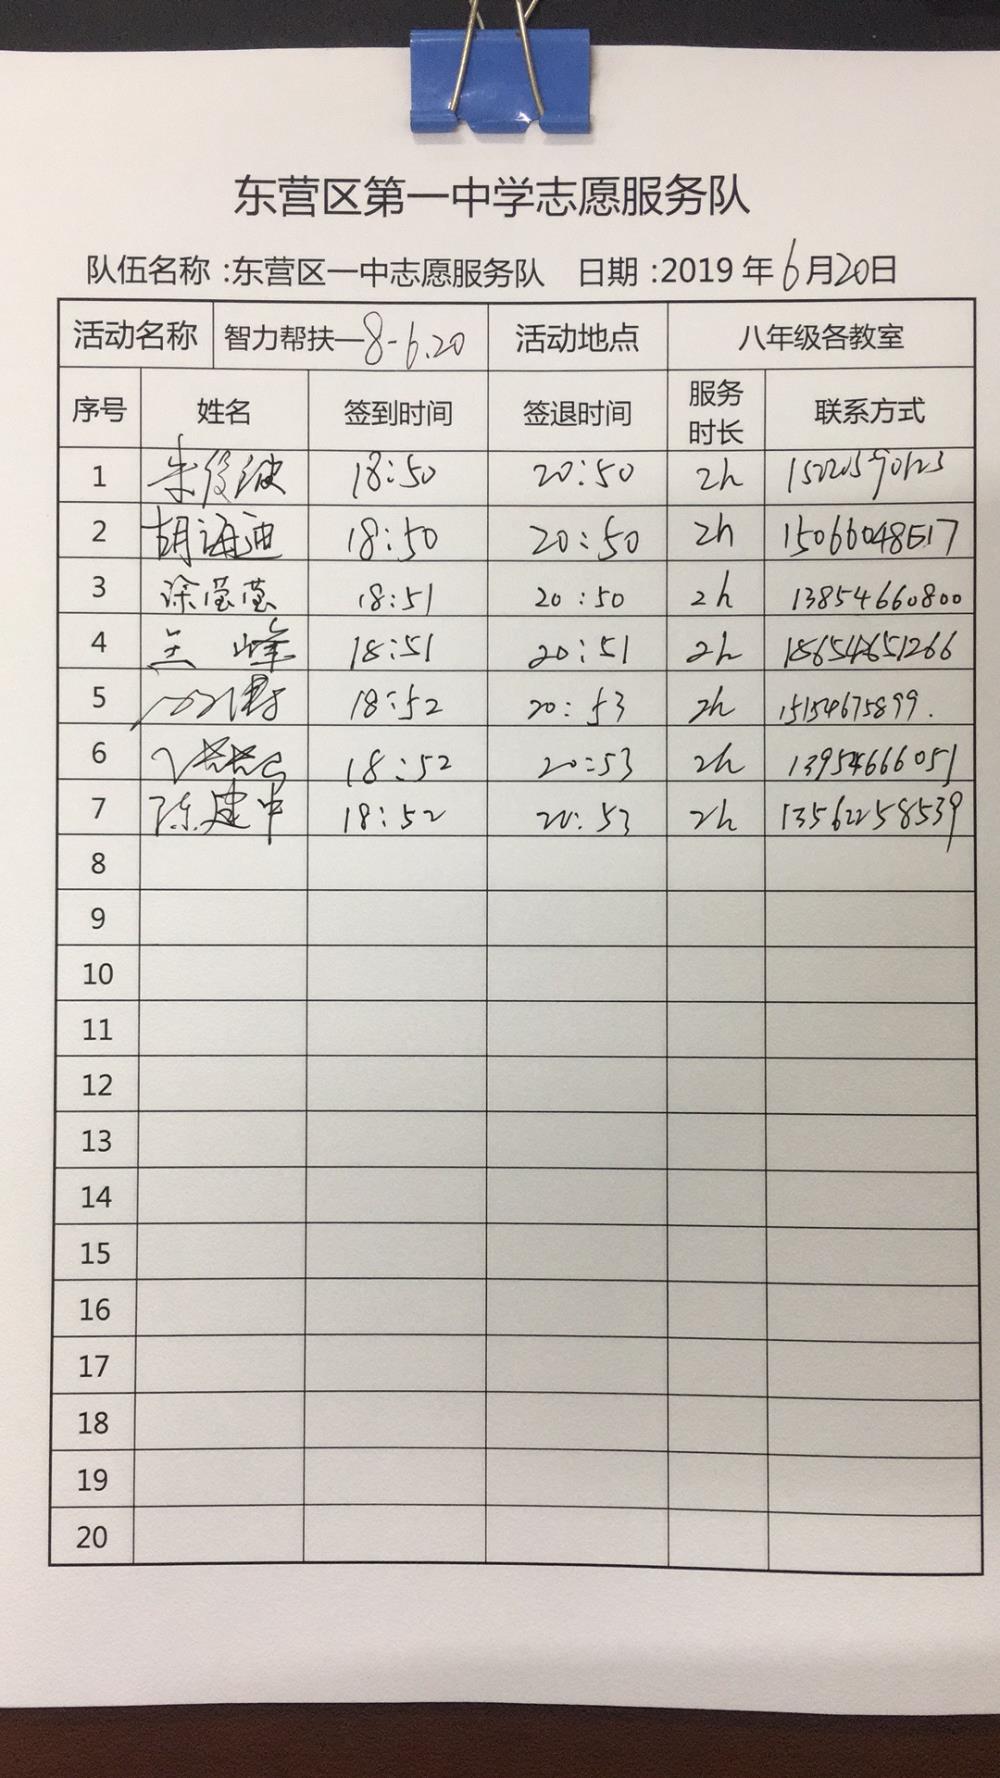 东营区第一中学志愿服务队
队伍名称:东营区一中志愿服务队 日期:2019年6月20日
活动名称 智力帮扶—8-6.20 活动地点 八年级各教室
序号 姓名 签到时间 签退时间 服务时长 联系方式
1 朱俊波 18:50 20:50 2h
2 胡海迪 18:50 20:50 2h 15066048517
3 徐莹莹 18:51 20:50 2h 13854660800
4 王峰 18:51 20:51 2h 18654651266
5 18:52 20:53 2h 15154675899.
6 18:52 20:53 2h 13954666051
7 陈建中 18:52 20:53 2h 13562258539
8
9
10
11
12
13
14
15
16
17
18
19
20